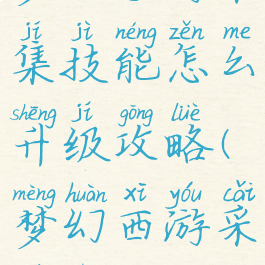 jí jì néng zěn me
集技能怎么
shēng jí gōng lüè
升级攻略(
mèng huàn xī yóu cǎi
梦幻西游采